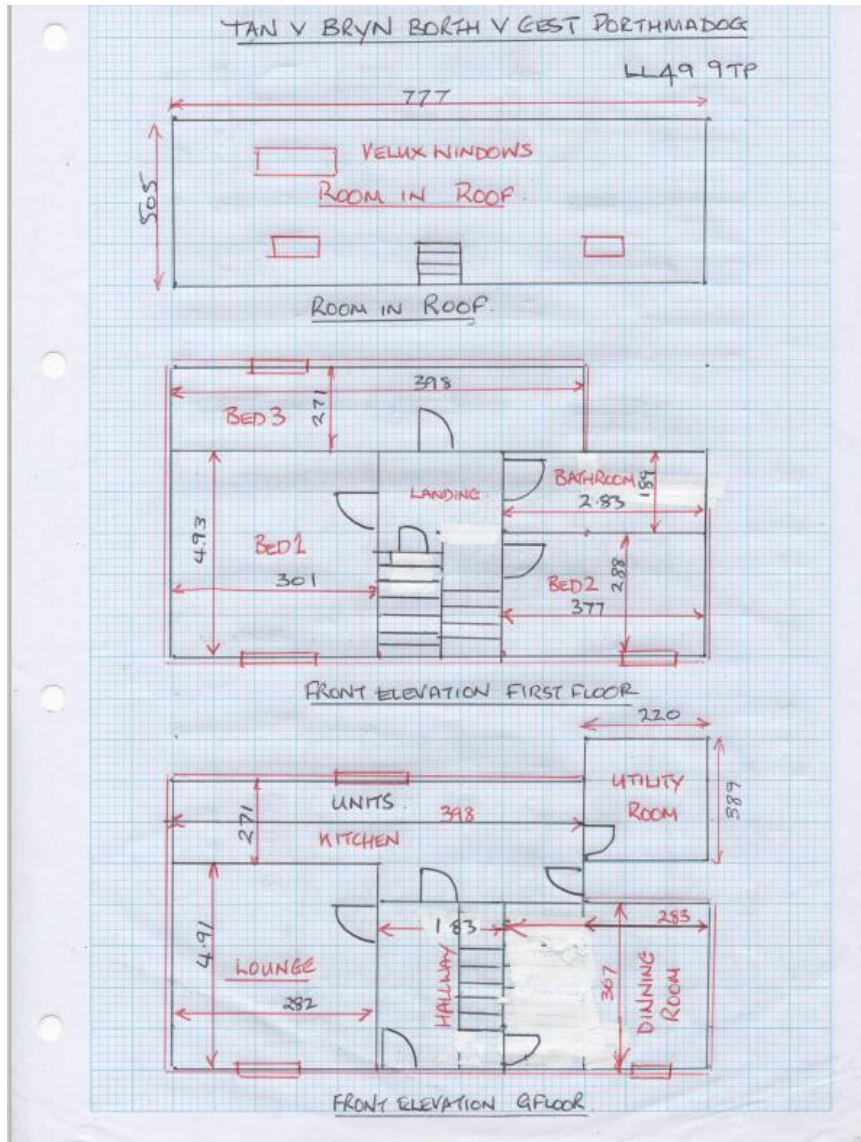 TAN Y BRYN BORTH Y GEST PORTHMADOG
LL49 9TP
777
505
VELUX WINDOWS
ROOM IN ROOF.
ROOM IN ROOF.
398
271
BED 3
LANDING
BATHROOM
189
2.83
4.93
BED 1
301
BED 2
288
377
FRONT ELEVATION FIRST FLOOR
220
UTILITY
ROOM
389
UNITS.
271
398
KITCHEN
4.91
LOUNGE
282
1.83
HALLWAY
283
367
DINNING
ROOM
FRONT ELEVATION GFLOOR